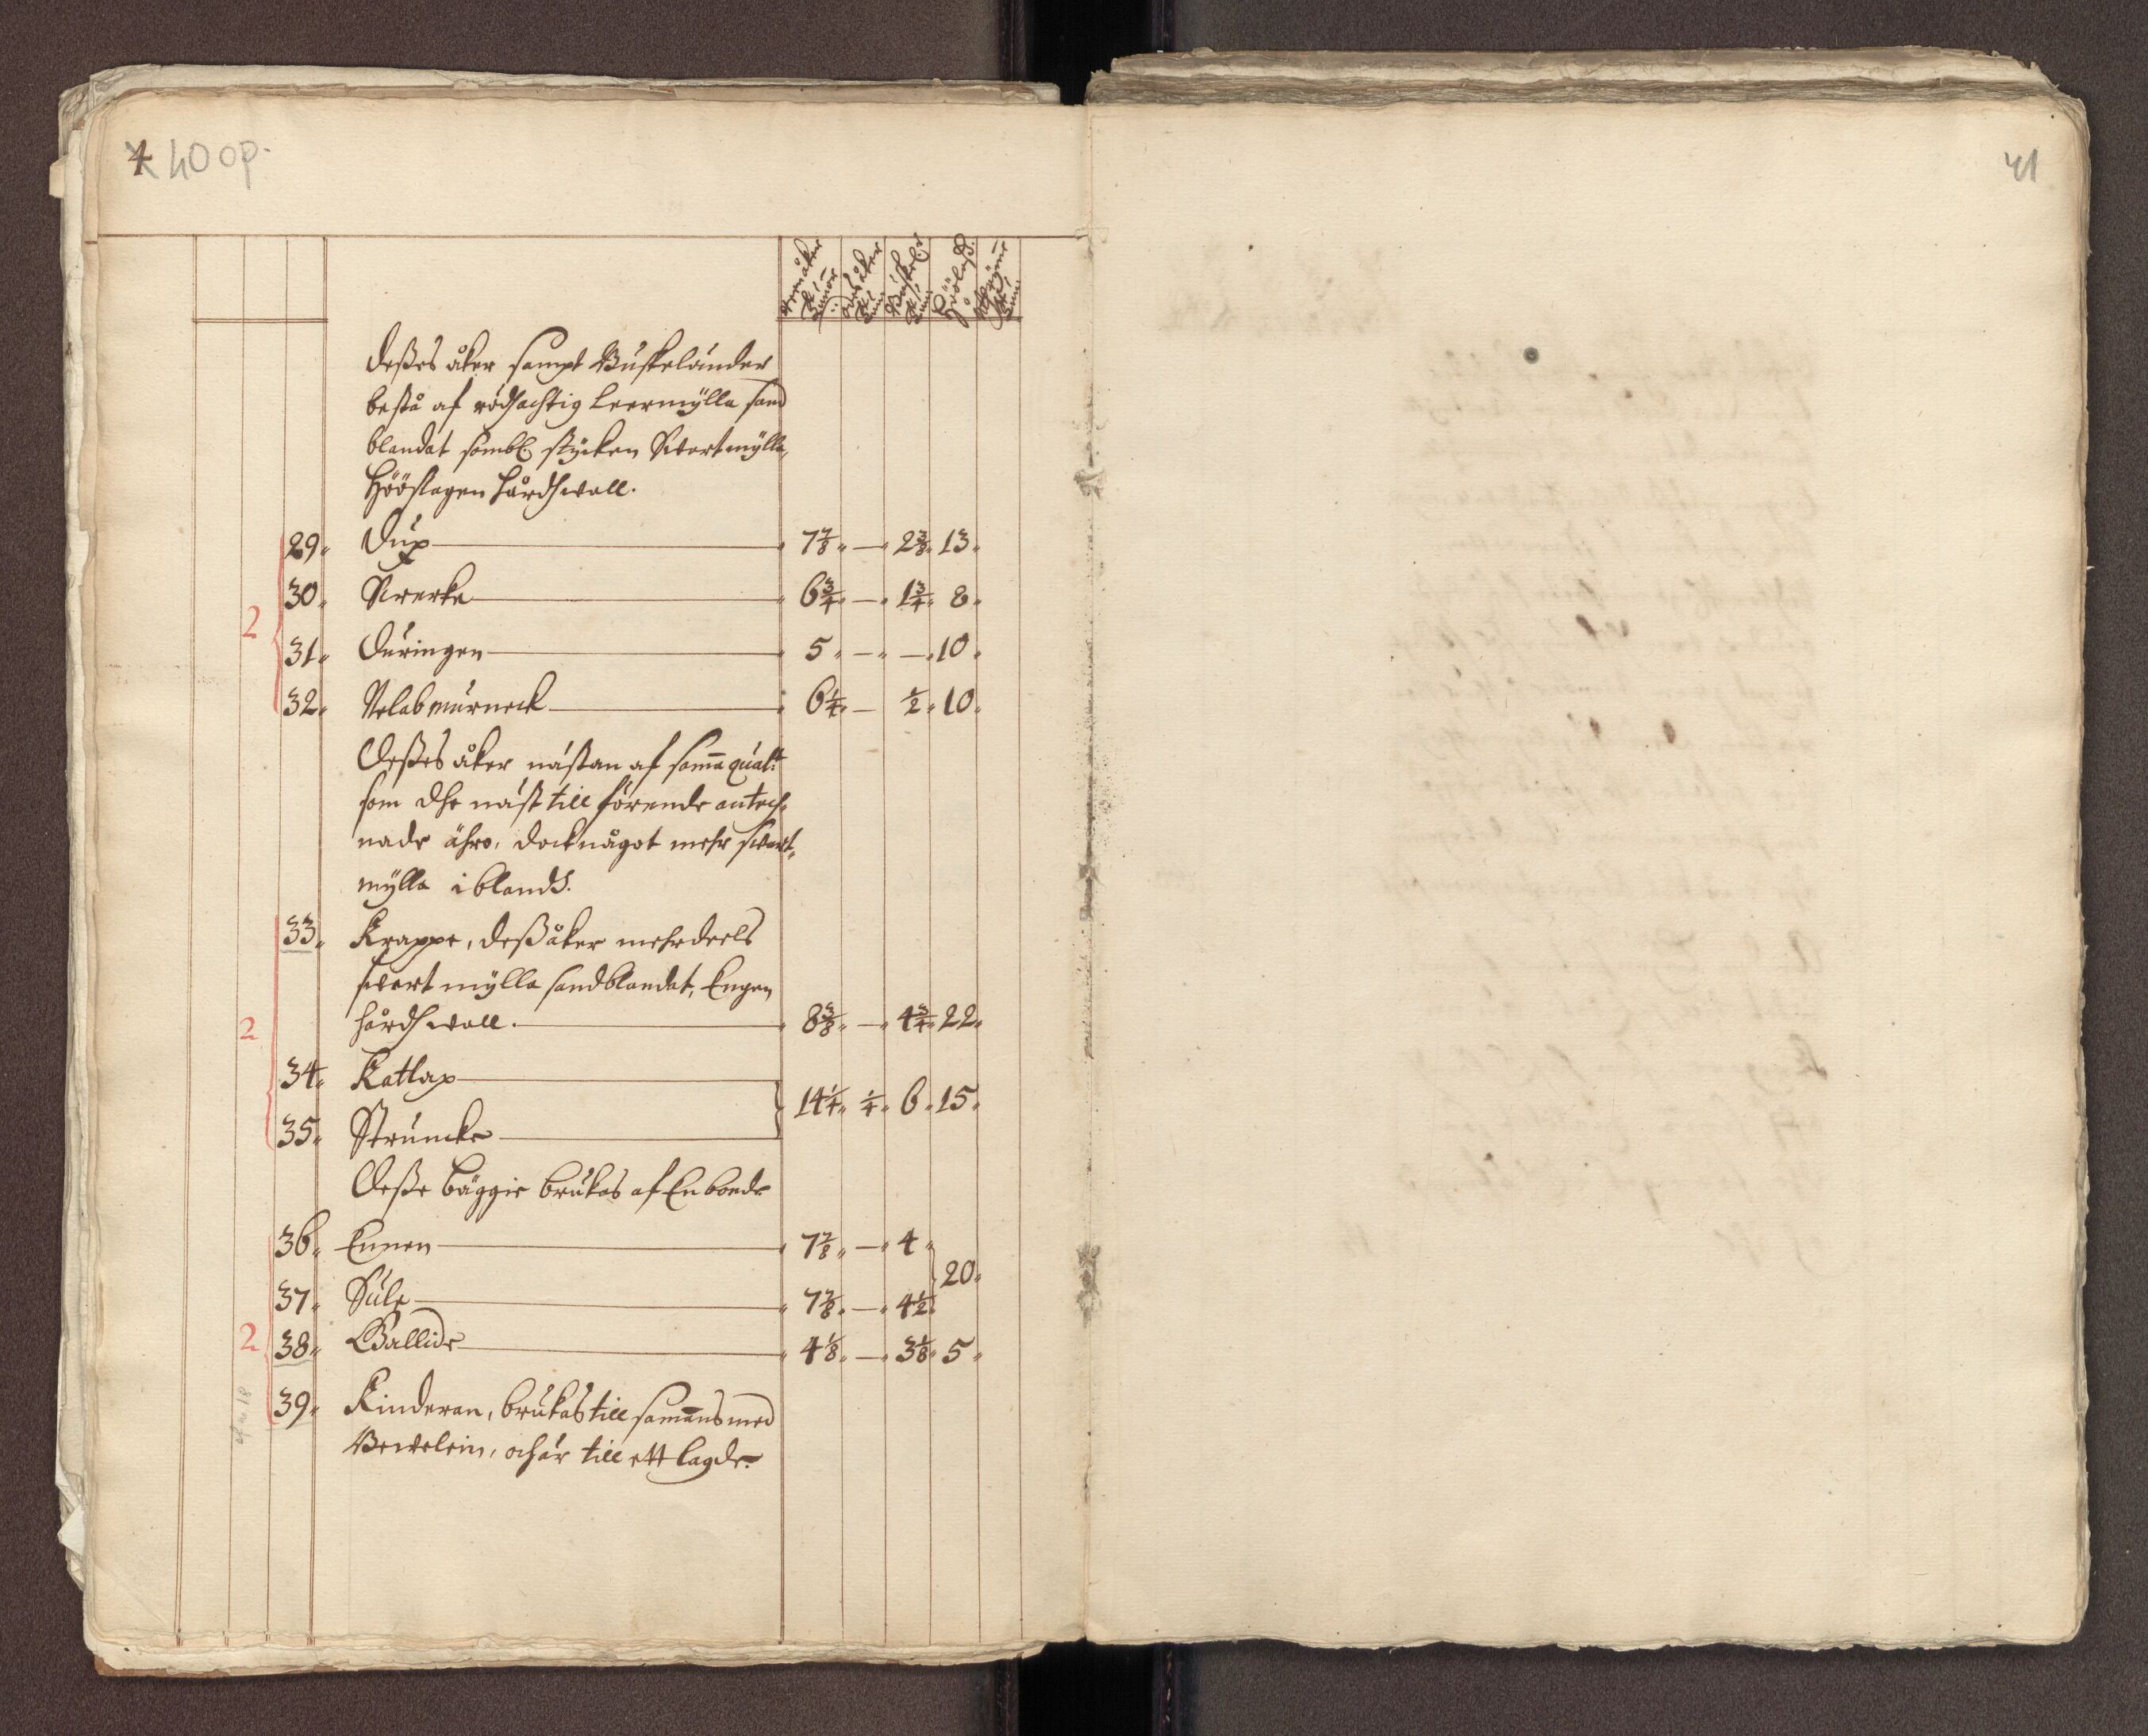 4 40 op.
41
Deßes åker sampt Buskelánder
bestå af rödhachtig leermÿlla sand
blandat sombl. stÿcken Swartmÿlla,
Hööslagen hårdhwall.
29. Dux 7 7/8. — 2 3/8. 13.
2 30. Swerke 6 3/4. — 1 3/4. 8.
31. Duringen 5. — — 10.
32. Nelabmurneck 6 1/4. — 1/2. 10.
Deßes åker nástan af sama qualt:
som dhe nást till förende antech-
nade ähro, dock något mehr swart-
mÿlla iblandh.
33. Krappe, deß åker mehrdeels
swart mÿlla sandblandat, Engen
2 hårdhwall. 8 3/8. — 4 3/4. 22.
34. Katlap
14 1/4. 1/4. 6. 15.
35. Strumcke
Deße bäggie brukas af En bonde
36. Ennen 7 7/8. — 4.
20.
37. Sule 7 7/8. — 4 1/2.
2 38. Ballide 4 1/8. — 3 1/8. 5.
39. Kinderan, brukas till samans med
Bewelein, och är till ett lagde.